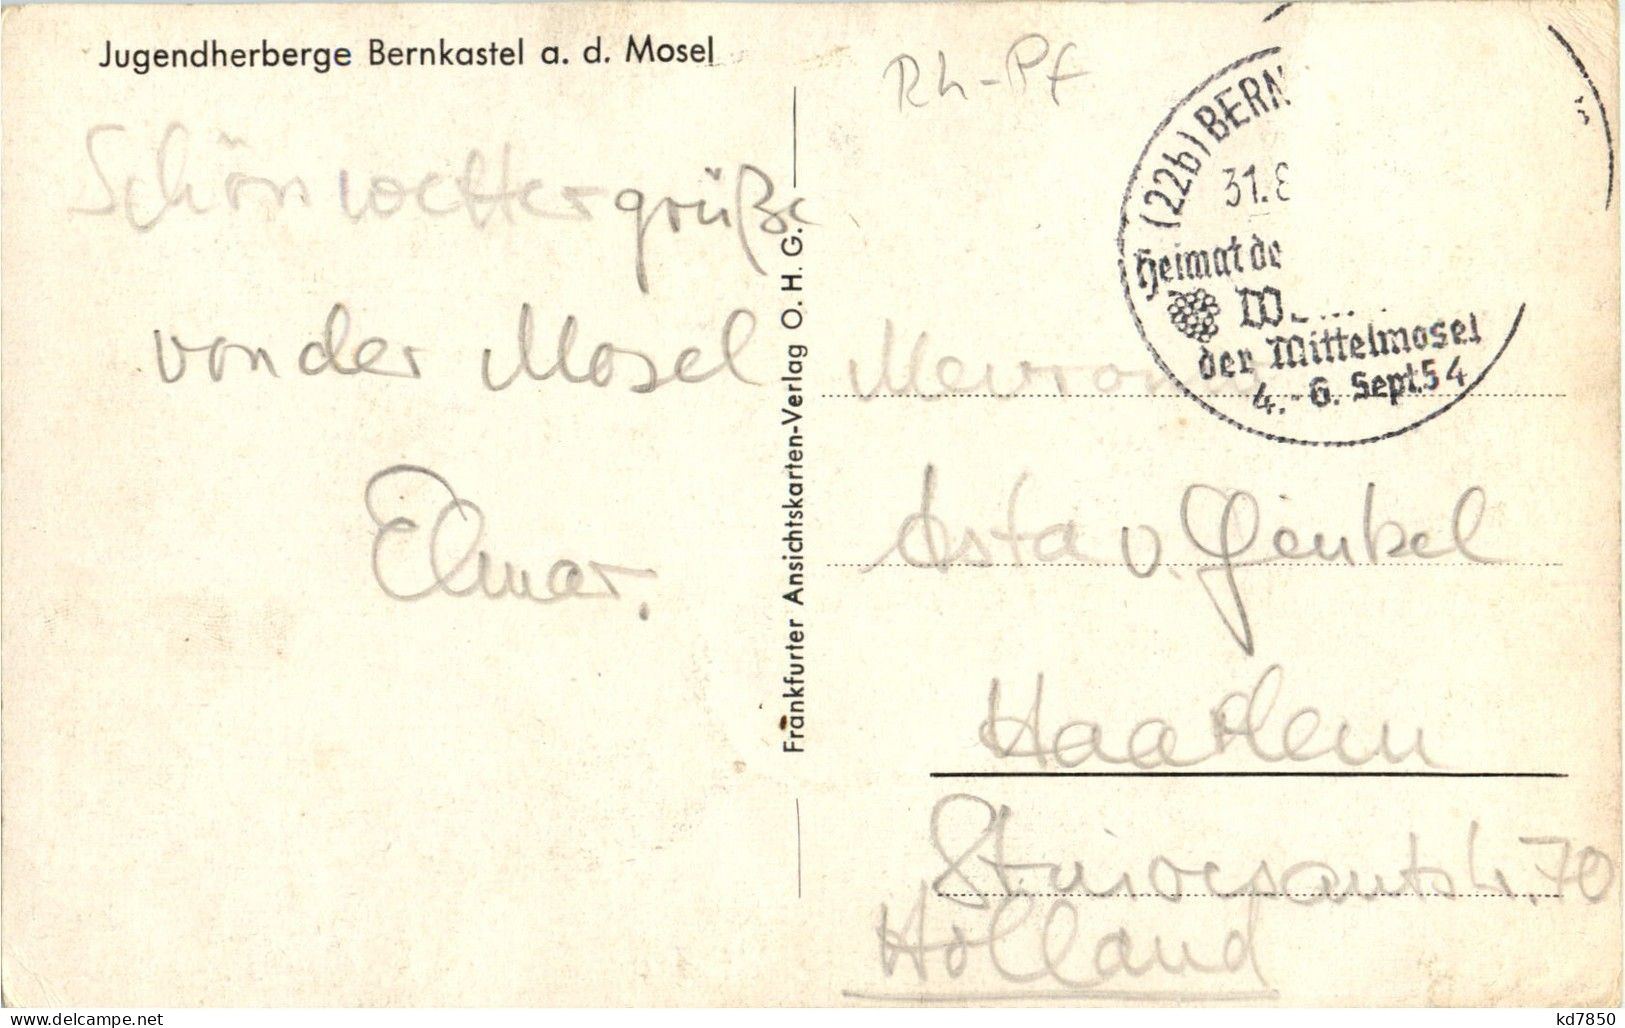 Jugendherberge Bernkastel a. d. Mosel
Schönwettergrüße
von der Mosel
Elmar.
Frankfurter Ansichtskarten-Verlag O. H. G.
Rh-Pf
(22b) BERN
31.8
Heimat de
der Mittelmosel
4.-6. Sept.54
Asta v. Genkel
Haarlem
70
Holland
delcampe.net
kd7850